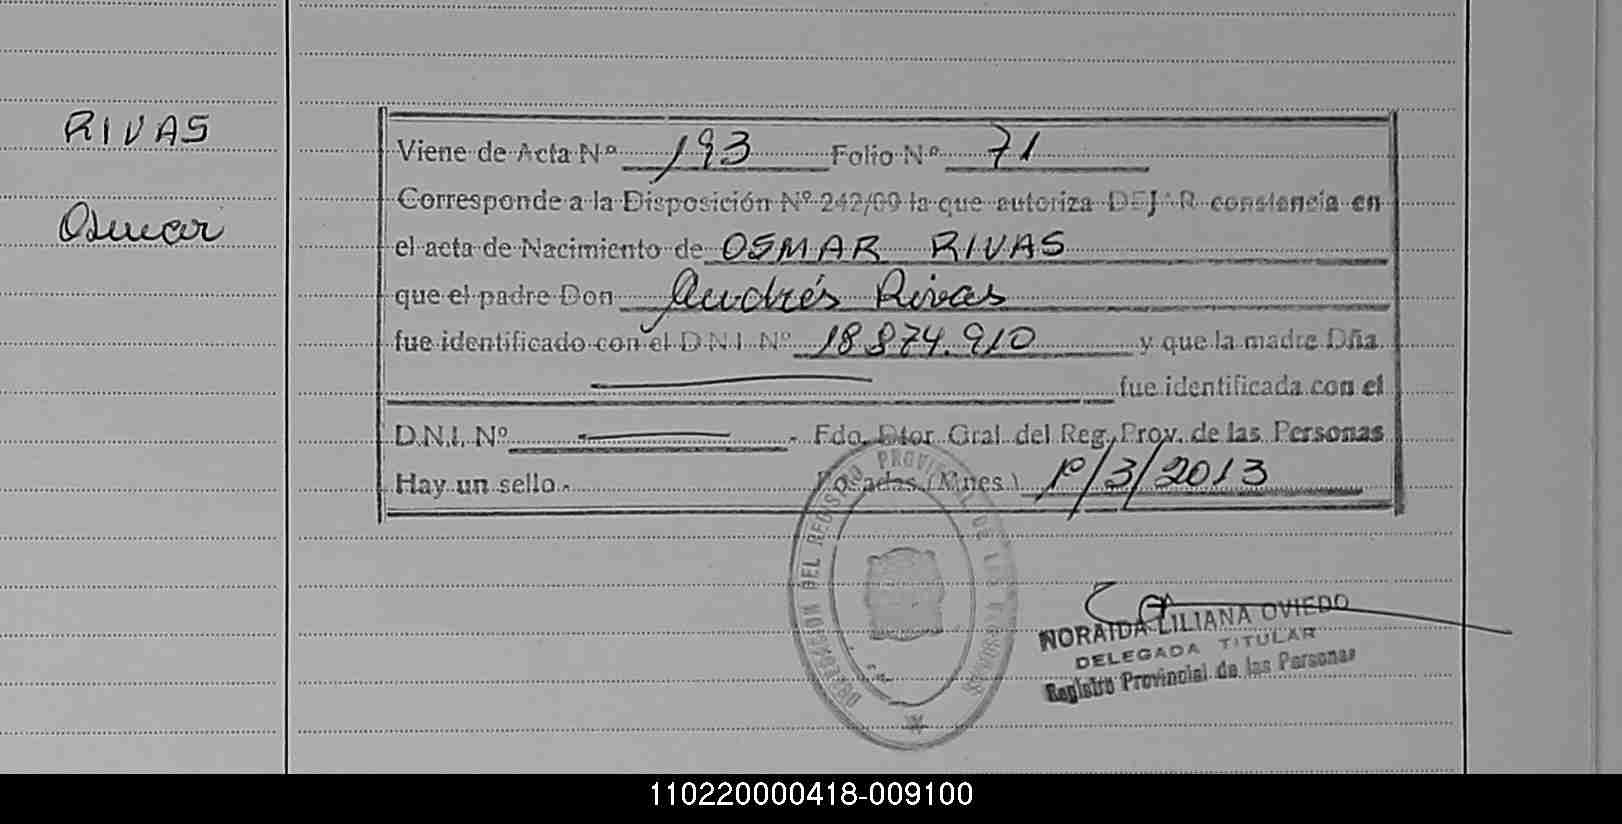 RIVAS
Osmar
Viene de Acta Nº 193 Folio Nº 71
Corresponde a la Disposición Nº 242/09 la que autoriza DEJAR constancia en
el acta de Nacimiento de OSMAR RIVAS
que el padre Don Andrés Rivas
fue identificado con el D.N.I. Nº 18 874.910 y que la madre Dña.
fue identificada con el
D.N.I. Nº - Fdo. Dtor Gral del Reg. Prov. de las Personas
Hay un sello.- Posadas (Mnes) 1º/3/2013
DELEGACION DEL REGISTRO PROVINCIAL DE LAS PERSONAS
NORAIDA LILIANA OVIEDO
DELEGADA TITULAR
Registro Provincial de las Personas
110220000418-009100